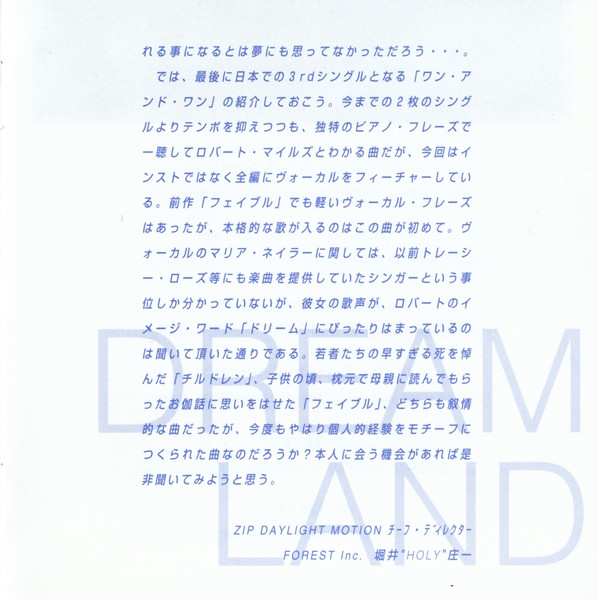 れる事になるとは夢にも思ってなかっただろう・・・。
では、最後に日本での3rdシングルとなる「ワン・ア
ンド・ワン」の紹介しておこう。今までの2枚のシング
ルよりテンポを抑えつつも、独特のピアノ・フレーズで
一聴してロバート・マイルズとわかる曲だが、今回はイ
ンストではなく全編にヴォーカルをフィーチャーしてい
る。前作「フェイブル」でも軽いヴォーカル・フレーズ
はあったが、本格的な歌が入るのはこの曲が初めて。ヴ
ォーカルのマリア・ネイラーに関しては、以前トレーシ
ー・ローズ等にも楽曲を提供していたシンガーという事
位しか分かっていないが、彼女の歌声が、ロバートのイ
メージ・ワード「ドリーム」にぴったりはまっているの
は聞いて頂いた通りである。若者たちの早すぎる死を悼
んだ「チルドレン」、子供の頃、枕元で母親に読んでもら
ったお伽話に思いをはせた「フェイブル」、どちらも叙情
的な曲だったが、今度もやはり個人的経験をモチーフに
つくられた曲なのだろうか？本人に会う機会があれば是
非聞いてみようと思う。
ZIP DAYLIGHT MOTION ﾁｰﾌ・ﾃﾞｨﾚｸﾀｰ
FOREST Inc. 堀井"HOLY"庄一
DREAM
LAND